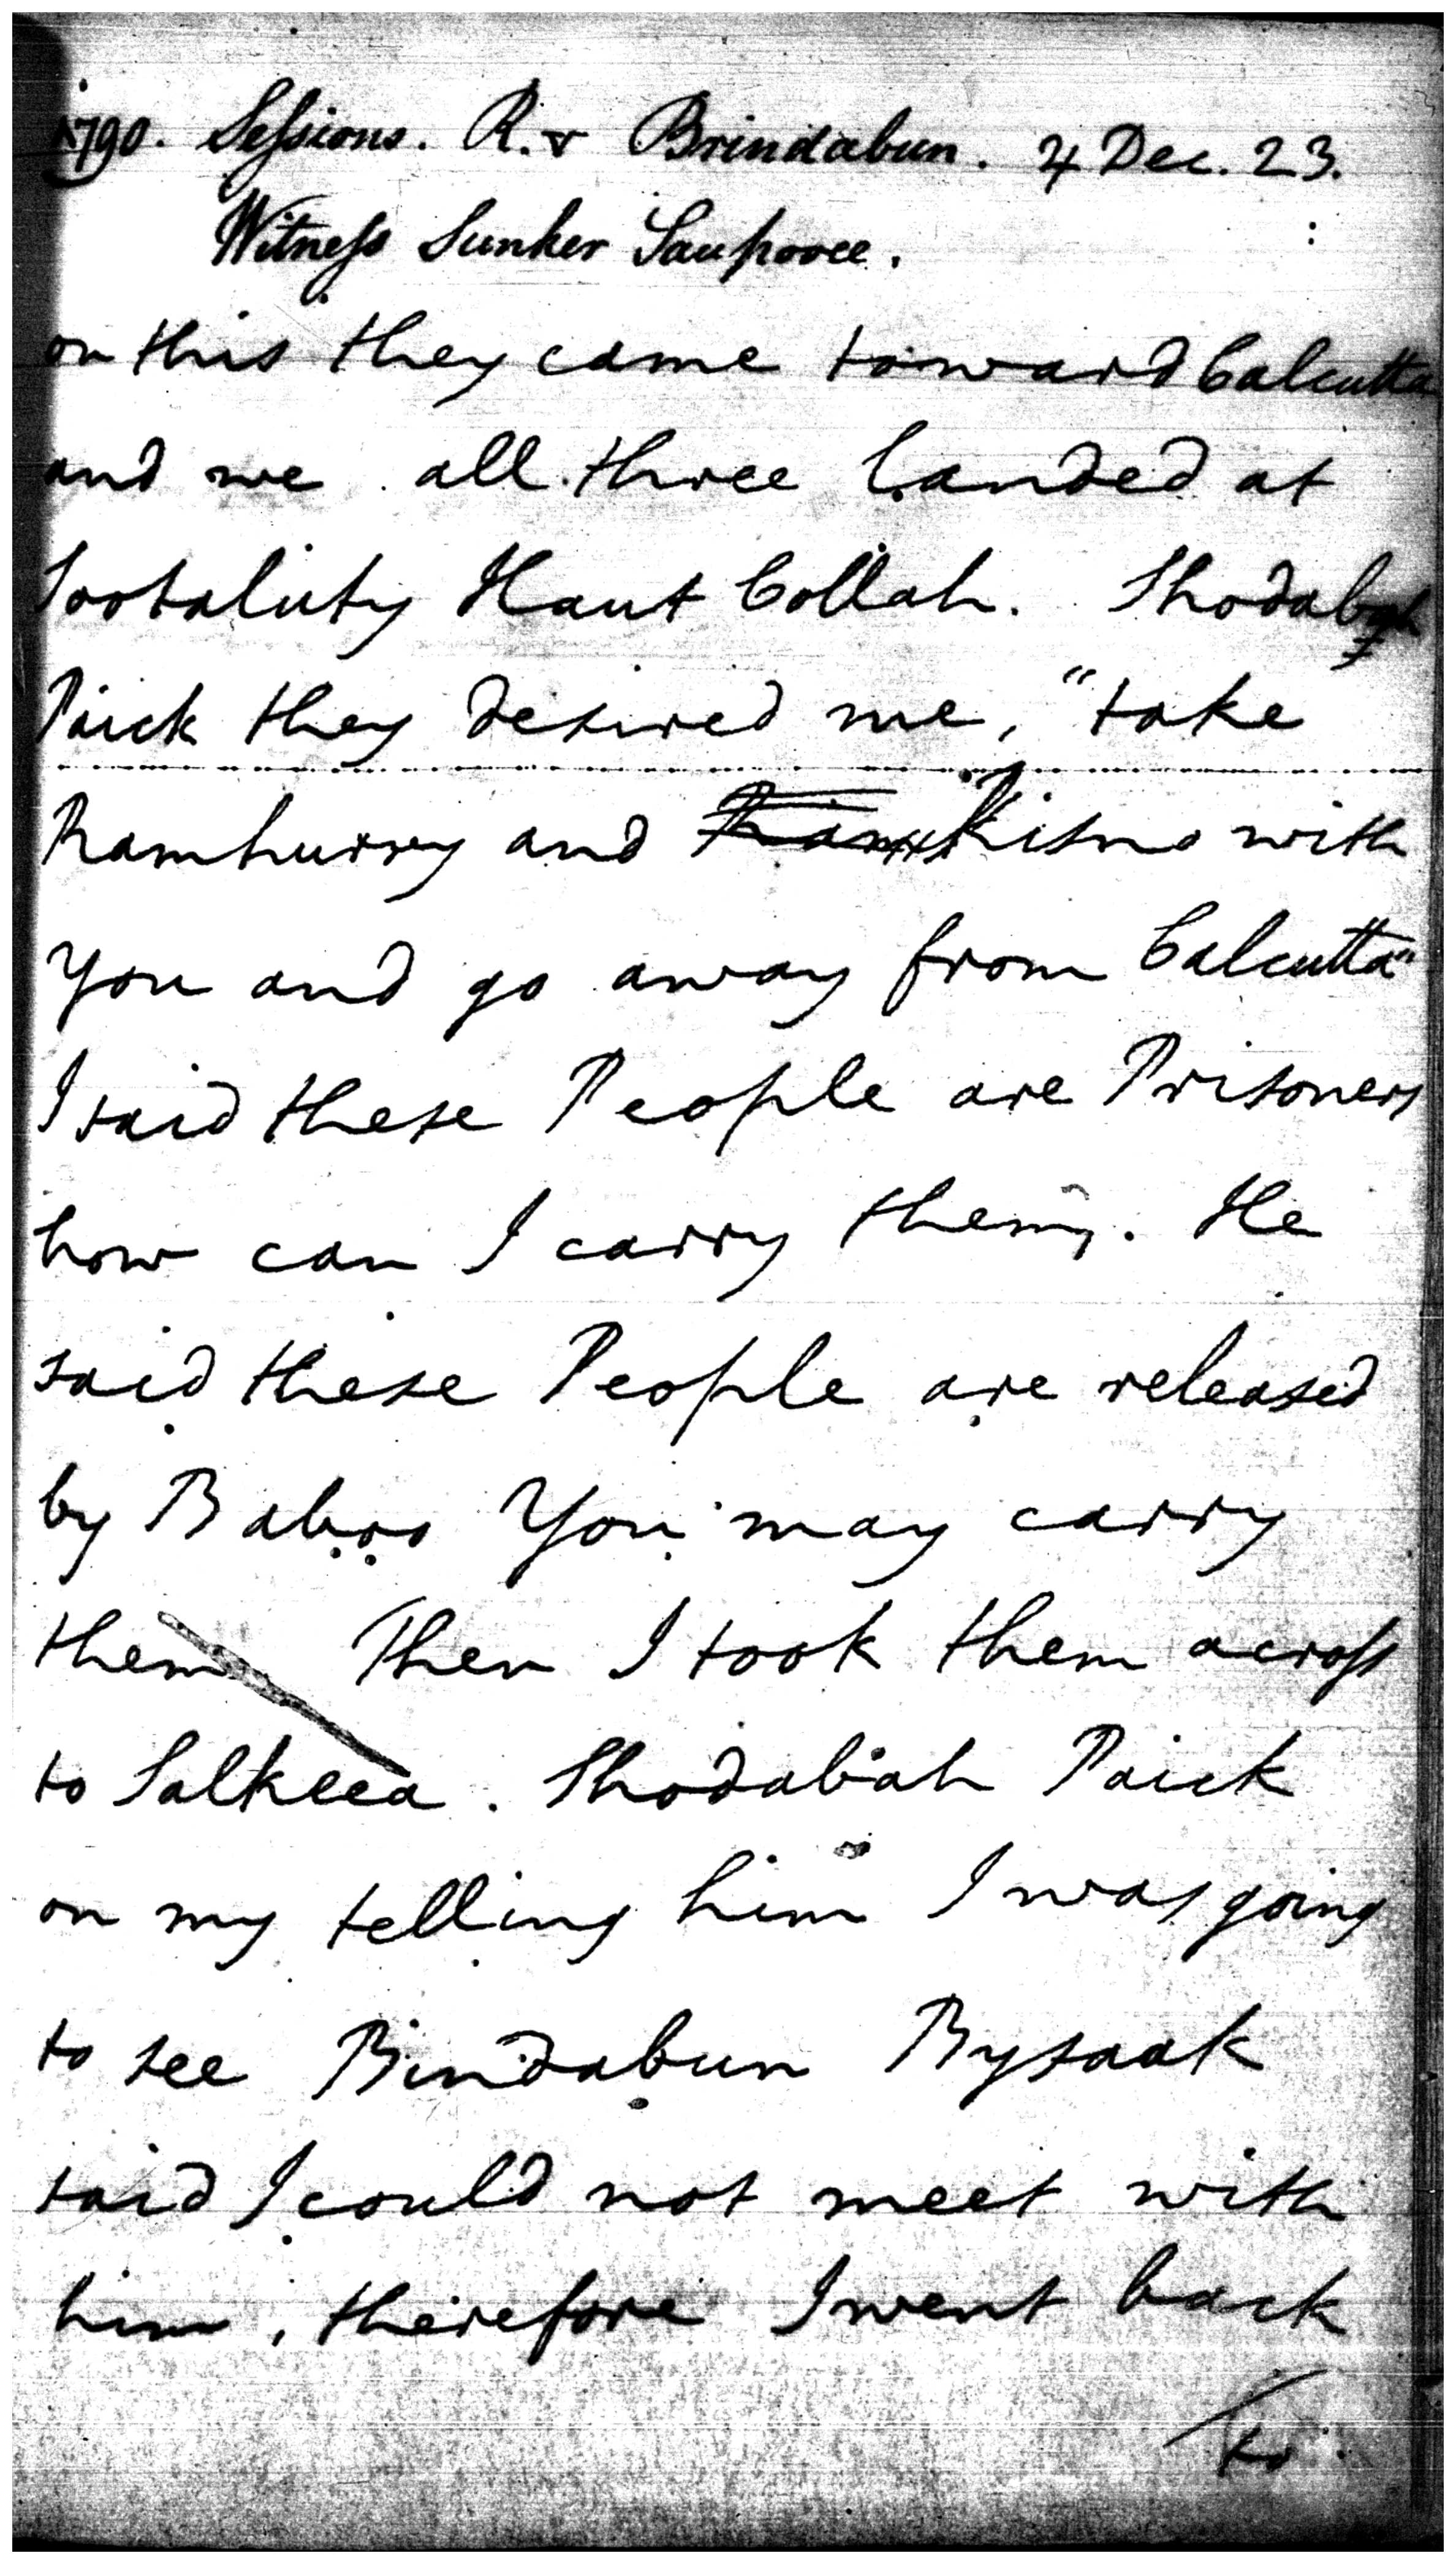 1790. Sessions. R. v Brindabun. 4 Dec. 23.
Witness Sunker Saupooee.
on this they came toward Calcutta
and we all three landed at
Sootaluty Haut Collah. Shodabah
Paick they desired me, "take
Ramhurry and Kisno with
You and go away from Calcutta"
I said these People are Prisoners
how can I carry them. He
said these People are released
by Baboo You may carry
them Then I took them across
to Salkeea. Shodabah Paick
on my telling him I was going
to see Bindabun Bysaak
said I could not meet with
him, therefore I went back
to